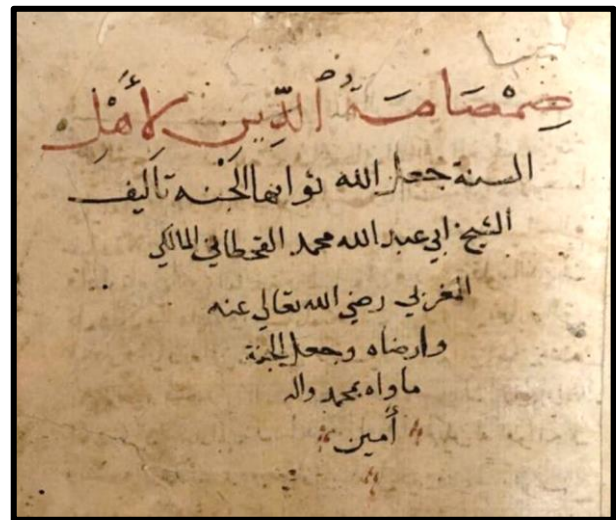 صِمْصَامَةُ الدِّينِ لأَهْلِ
السنة جعل الله ثوابها الجنة تاليف
الشيخ ابي عبد الله محمد القحطاني المالكي
المغربي رضي الله تعالي عنه
وارضاه وجعل الجنة
ماواه بمحمد واله
أمين